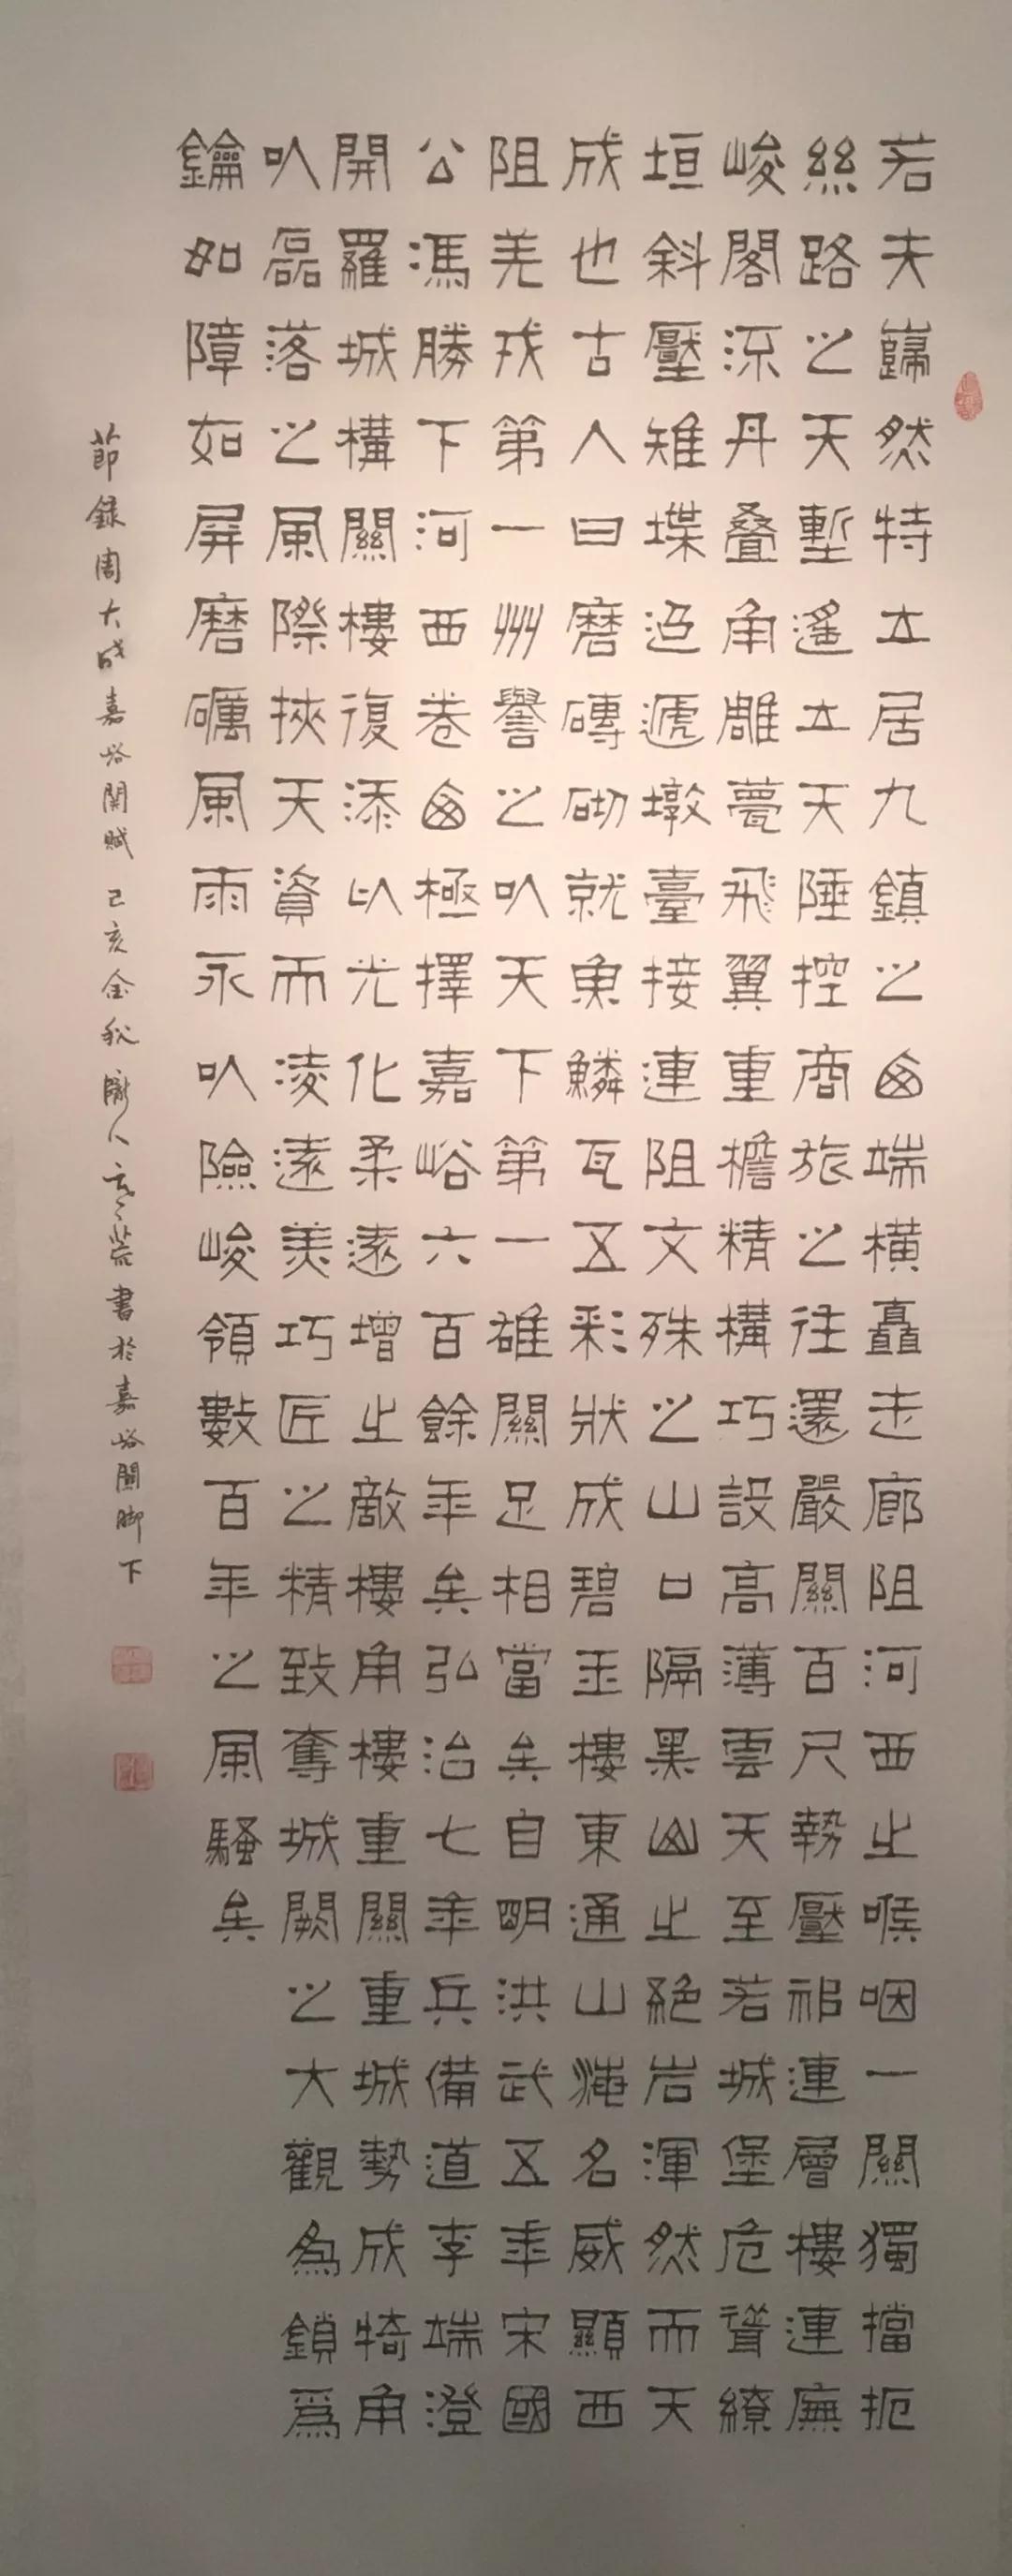 若夫巋然特立居九鎮之西端橫矗走廊阻河西之喉咽一關獨擋扼
絲路之天塹遙立天陲控商旅之往還嚴關百尺勢壓祁連層樓連廡
峻閣流丹叠角雕甍飛翼重檐精構巧設高薄雲天至若城堡危聳繚
垣斜壓雉堞迢遞墩臺接連阻文殊之山口隔黑山之絕岩渾然而天
成也古人曰磨磚砌就魚鱗瓦五彩狀成碧玉樓東通山海名威顯西
阻羌戎第一州譽之以天下第一雄關足相當矣自明洪武五年宋國
公馮勝下河西卷西極擇嘉峪六百餘年矣弘治七年兵備道李端澄
開羅城構關樓復添以光化柔遠增之敵樓角樓重關重城勢成犄角
以磊落之風際挾天資而凌遠美巧匠之精致奪城闕之大觀為鎖爲
鑰如障如屏磨礪風雨永以險峻領數百年之風騷矣
節録周大成嘉峪關賦 己亥金秋隴人書於嘉峪關脚下